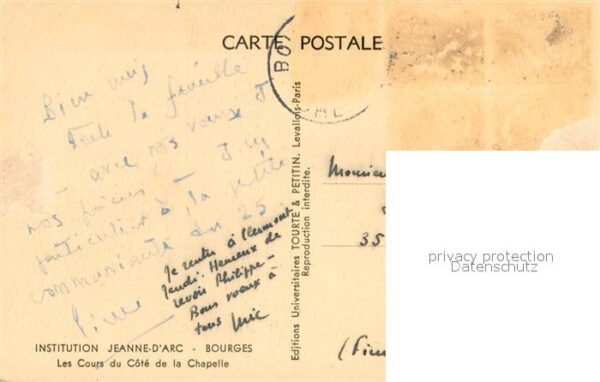 CARTE POSTALE
BO
Bien unis
toute la famille
avec nos voeux et
nos prières – J'ai
particulier à la petite
communauté du 25
Je rentre à Clermont
Jeudi. Heureux de
revoir Philippe –
Bons voeux à
tous
Editions Universitaires TOURTE & PETITIN. Levallois-Paris
Reproduction interdite.
Monsieur
35
privacy protection
Datenschutz
INSTITUTION JEANNE-D'ARC - BOURGES
Les Cours du Côté de la Chapelle